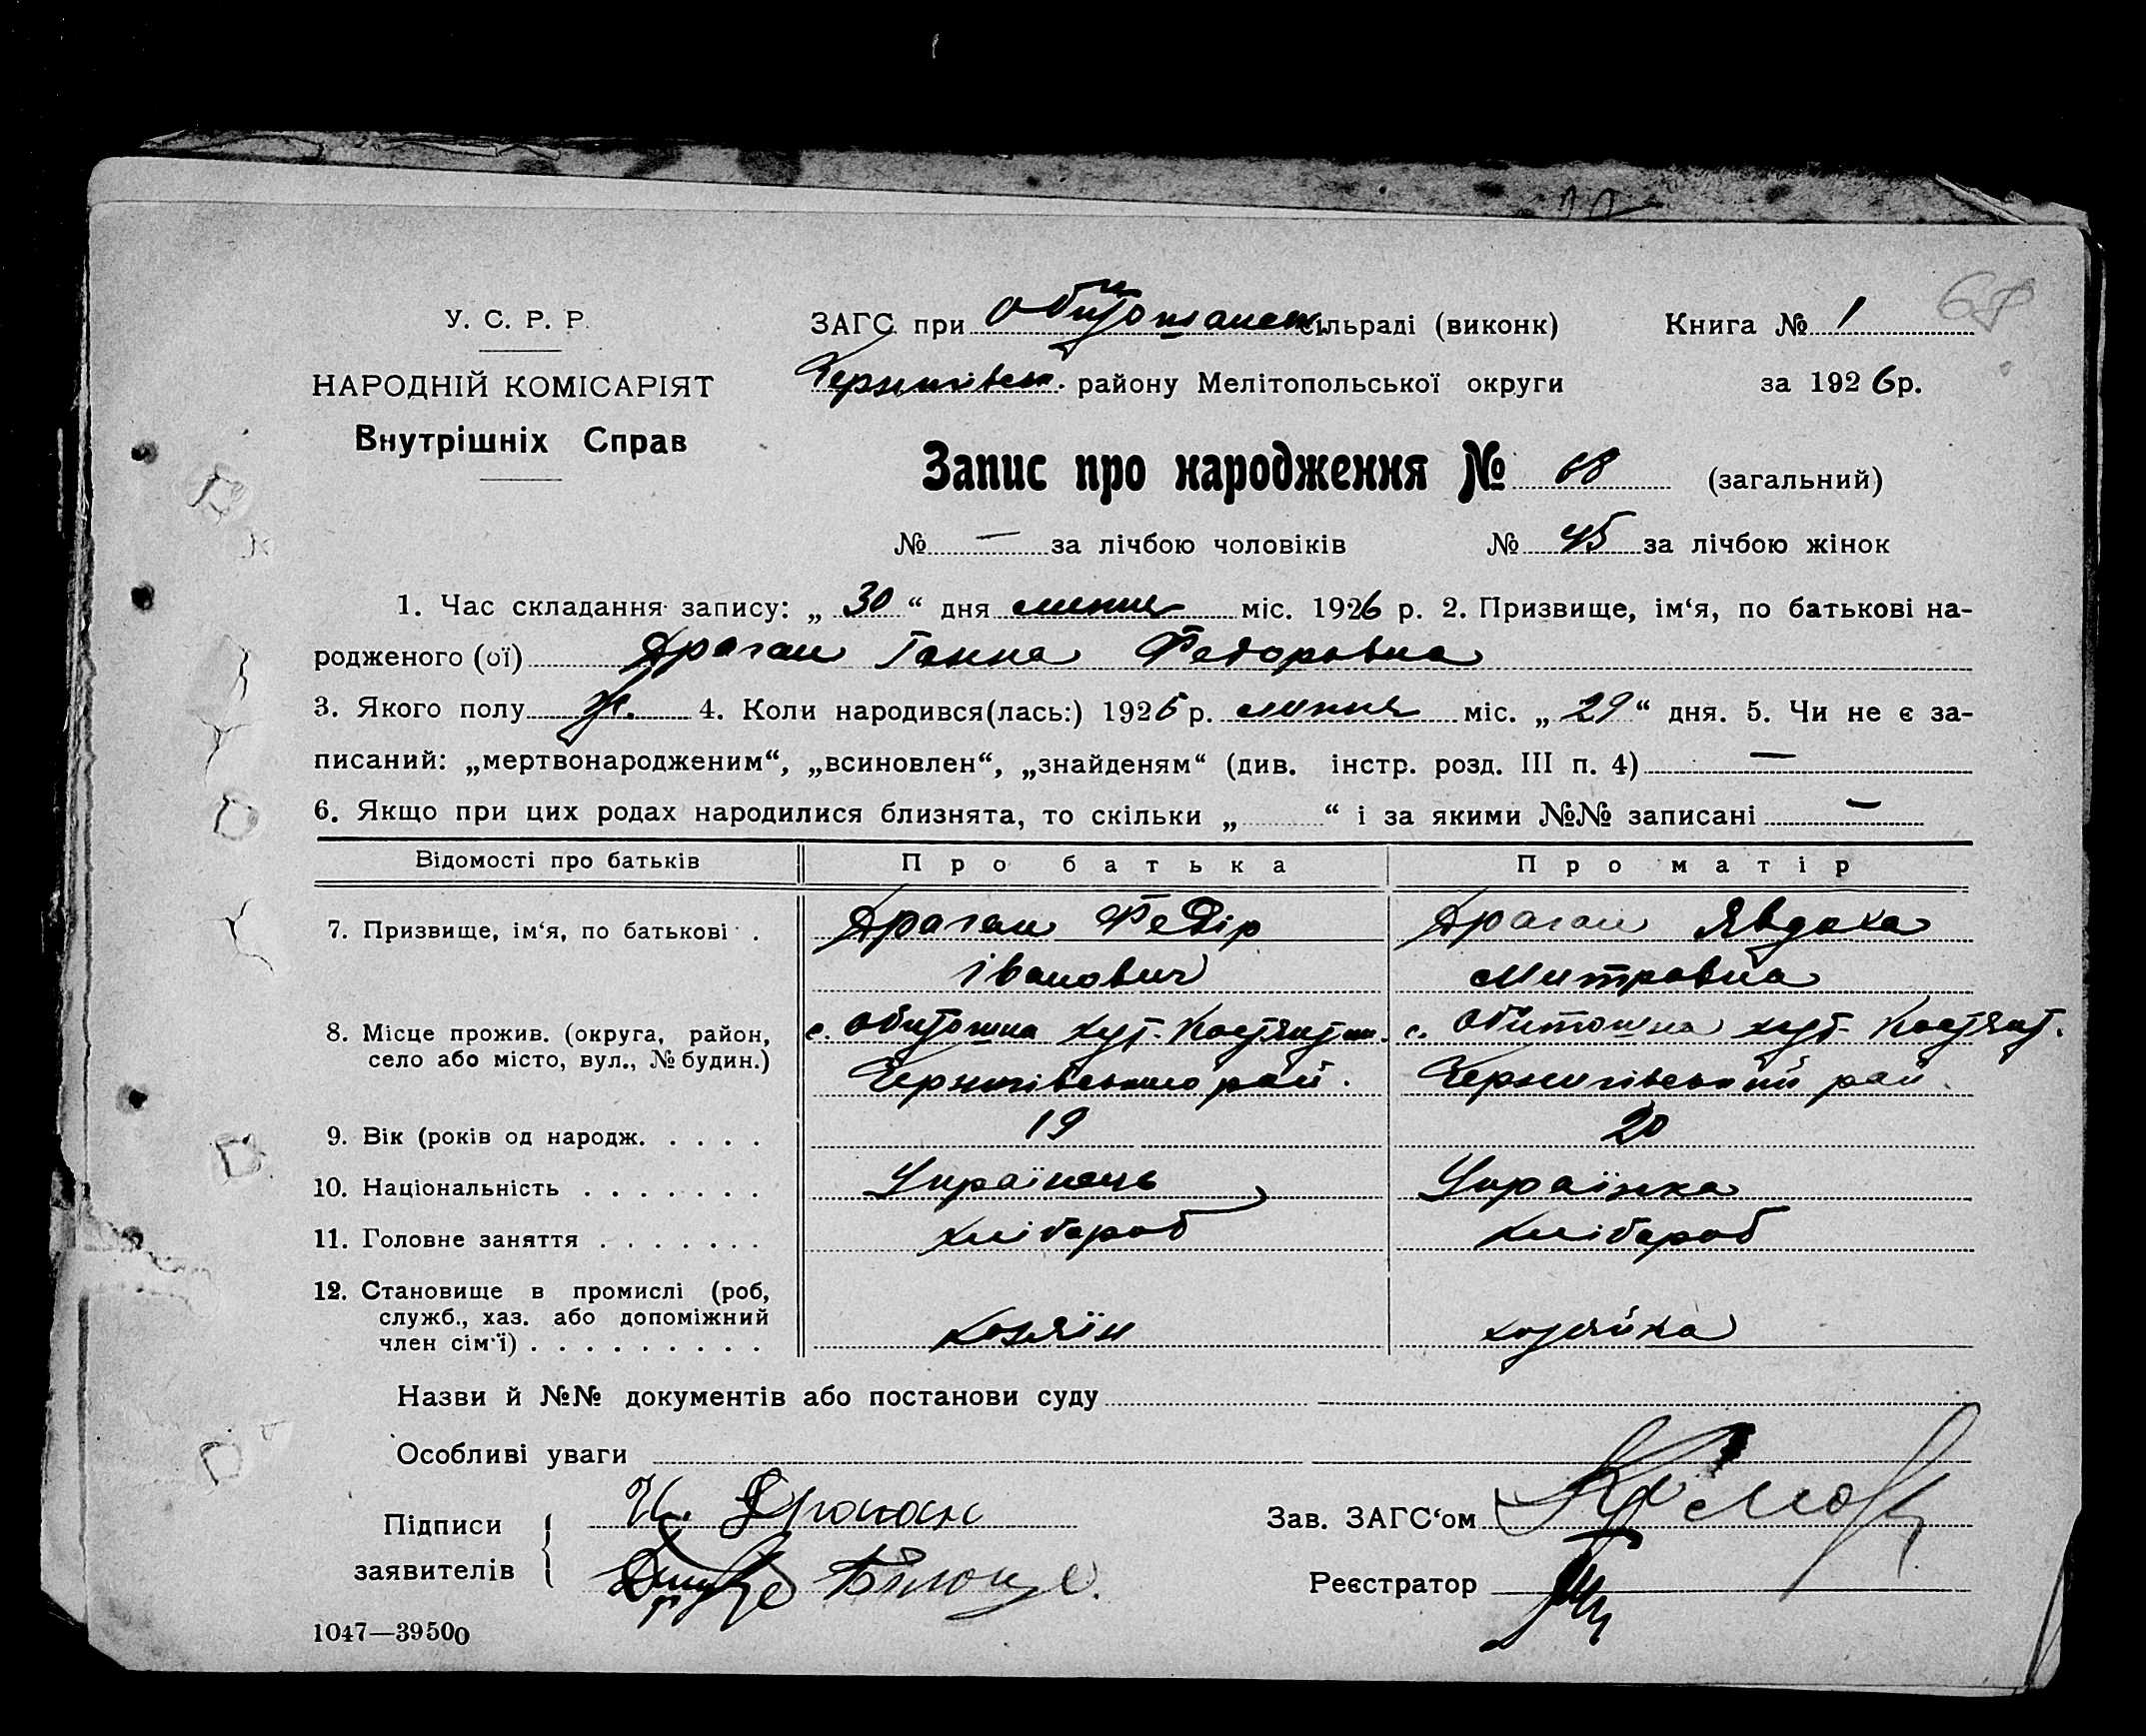 68
У. С. Р. Р.
НАРОДНІЙ КОМІСАРІЯТ
Внутрішніх Справ
ЗАГС при Обитошанськ. сільраді (виконк)
Книга № 1
Чернигівськ. району Мелітопольської округи
за 1926 р.
Запис про народження № 68 (загальний)
№ — за лічбою чоловіків № 45 за лічбою жінок
1. Час складання запису: „ 30 “ дня липня міс. 1926 р. 2. Призвище, ім‘я, по батькові на-
родженого (ої) Драган Ганна Федоровна
3. Якого полу ж. 4. Коли народився(лась:) 1926 р. липня міс. „ 29 “ дня. 5. Чи не є за-
писаний: „мертвонародженим“, „всиновлен“, „знайденям“ (див. інстр. розд. III п. 4) —
6. Якщо при цих родах народилися близнята, то скільки „ “ і за якими №№ записані —
Відомості про батьків Про батька Про матір
7. Призвище, ім‘я, по батькові . Драган Федір Драган Явдоха
Іванович Митровна
8. Місце прожив. (округа, район, с. Обитошна хут. с. Обитошна хут.
село або місто, вул., № будин.) Чернигівського рай. Чернигівський рай.
9. Вік (років од народж. . . . . 19 20
10. Національність . . . . . . . Українець Українка
11. Головне заняття . . . . . . . хлібороб хлібороб
12. Становище в промислі (роб,
служб., хаз. або допоміжний
член сім‘ї) . . . . . . . . . хозяїн хозяйка
Назви й №№ документів або постанови суду
Особливі уваги
Підписи И. Драган
Зав. ЗАГС‘ом
заявителів
Реєстратор
1047—39500